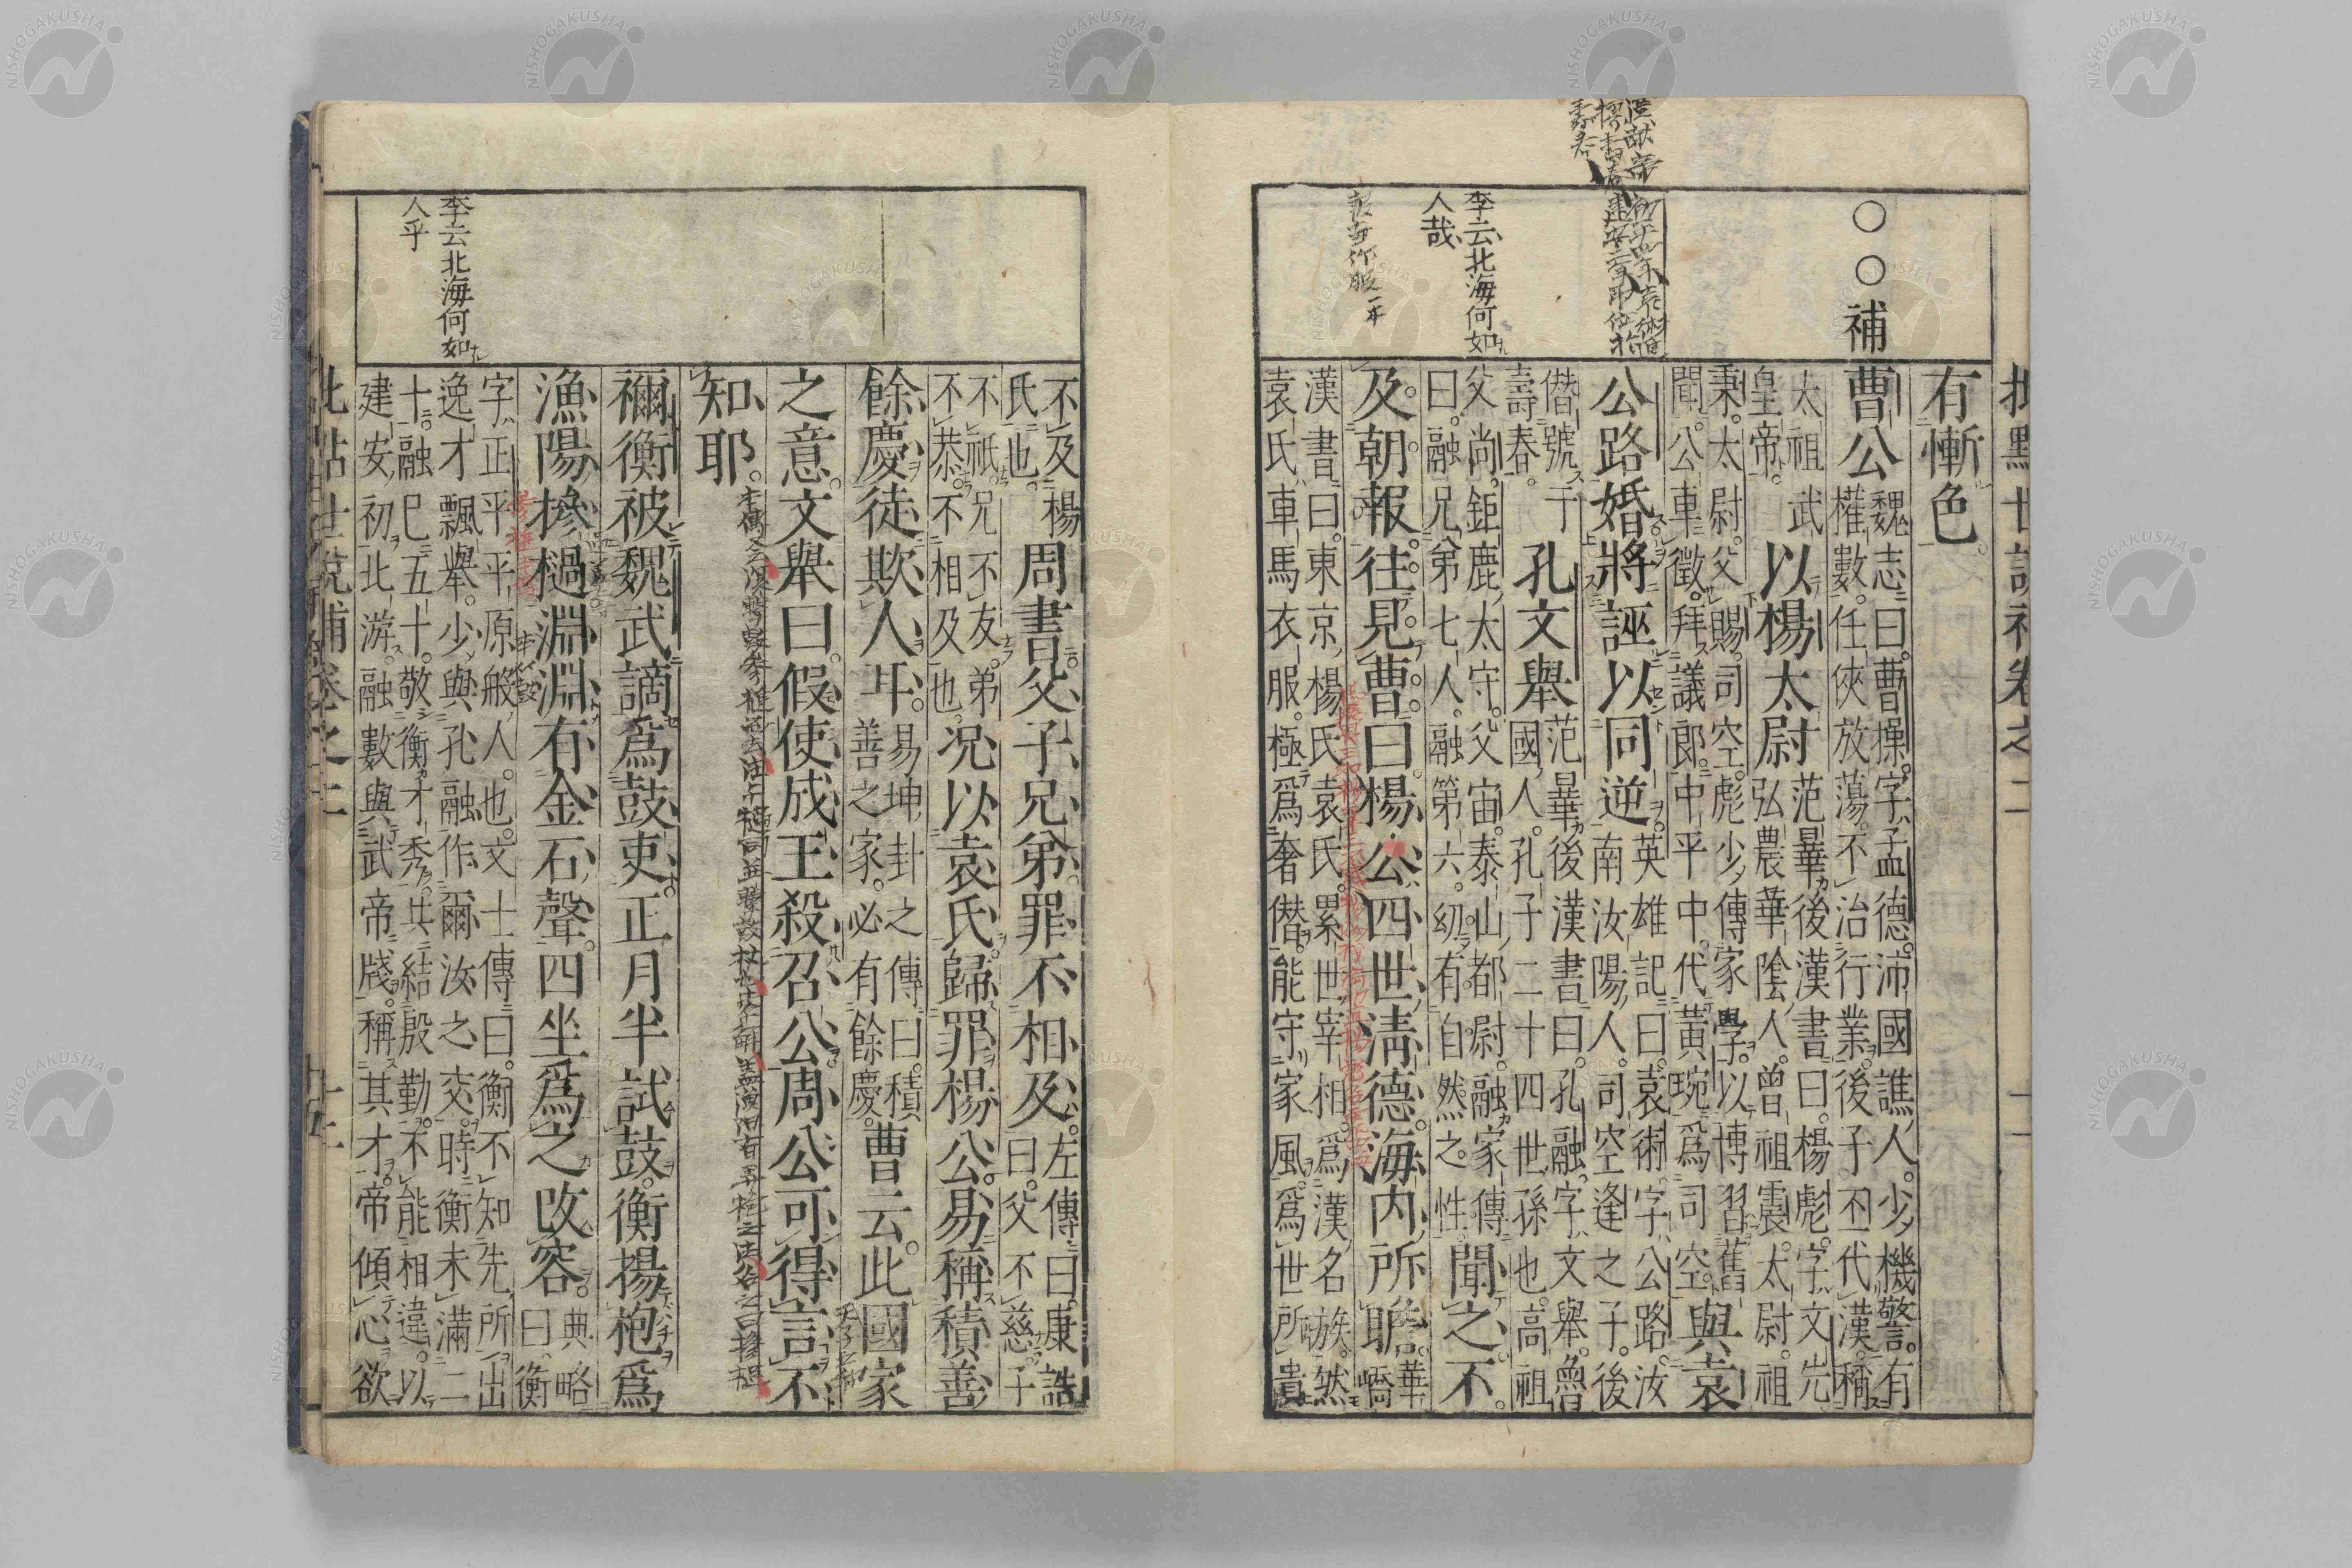 批點世說補卷之二
有慚色
○○補
曹公魏志曰曹操字孟德沛國譙人少機警有
權數任俠放蕩不治行業後子丕代漢稱
太祖武
皇帝
以楊太尉范曄後漢書曰楊彪字文先
弘農華陰人曾祖震太尉祖
秉太尉父賜司空彪少傳家學以博習舊
聞公車徵拜議郎中平中代黃琬爲司空
與袁
公路婚將誣以同逆英雄記曰袁術字公路汝
南汝陽人司空逢之子後
僭號于
壽春
孔文舉范曄後漢書曰孔融字文舉魯
國人孔子二十四世孫也高祖
父尚鉅鹿太守父宙泰山都尉融家傳
曰融兄弟七人融第六幼有自然之性
聞之不
李云北海何如
人哉
及朝報往見曹曰楊公四世淸德海内所瞻華
嶠
漢書曰東京楊氏袁氏累世宰相爲漢名族然
袁氏車馬衣服極爲奢僭能守家風爲世所貴
不及楊
氏也
周書父子兄弟罪不相及左傳曰康誥
曰父不慈子
不祇兄不友弟
不恭不相及也
况以袁氏歸罪楊公易稱積善
餘慶徒欺人耳易坤卦之傳曰積
善之家必有餘慶
曹云此國家
之意文舉曰假使成王殺召公周公可得言不
知耶
禰衡被魏武謫爲鼓吏正月半試鼓衡揚枹爲
漁陽摻檛淵淵有金石聲四坐爲之改容典略
曰衡
李云北海何如
人乎
字正平平原般人也文士傳曰衡不知先所出
逸才飄舉少與孔融作爾汝之交時衡未滿二
十融已五十敬衡才秀共結殷勤不能相違以
建安初北游融數與武帝牋稱其才帝傾心欲